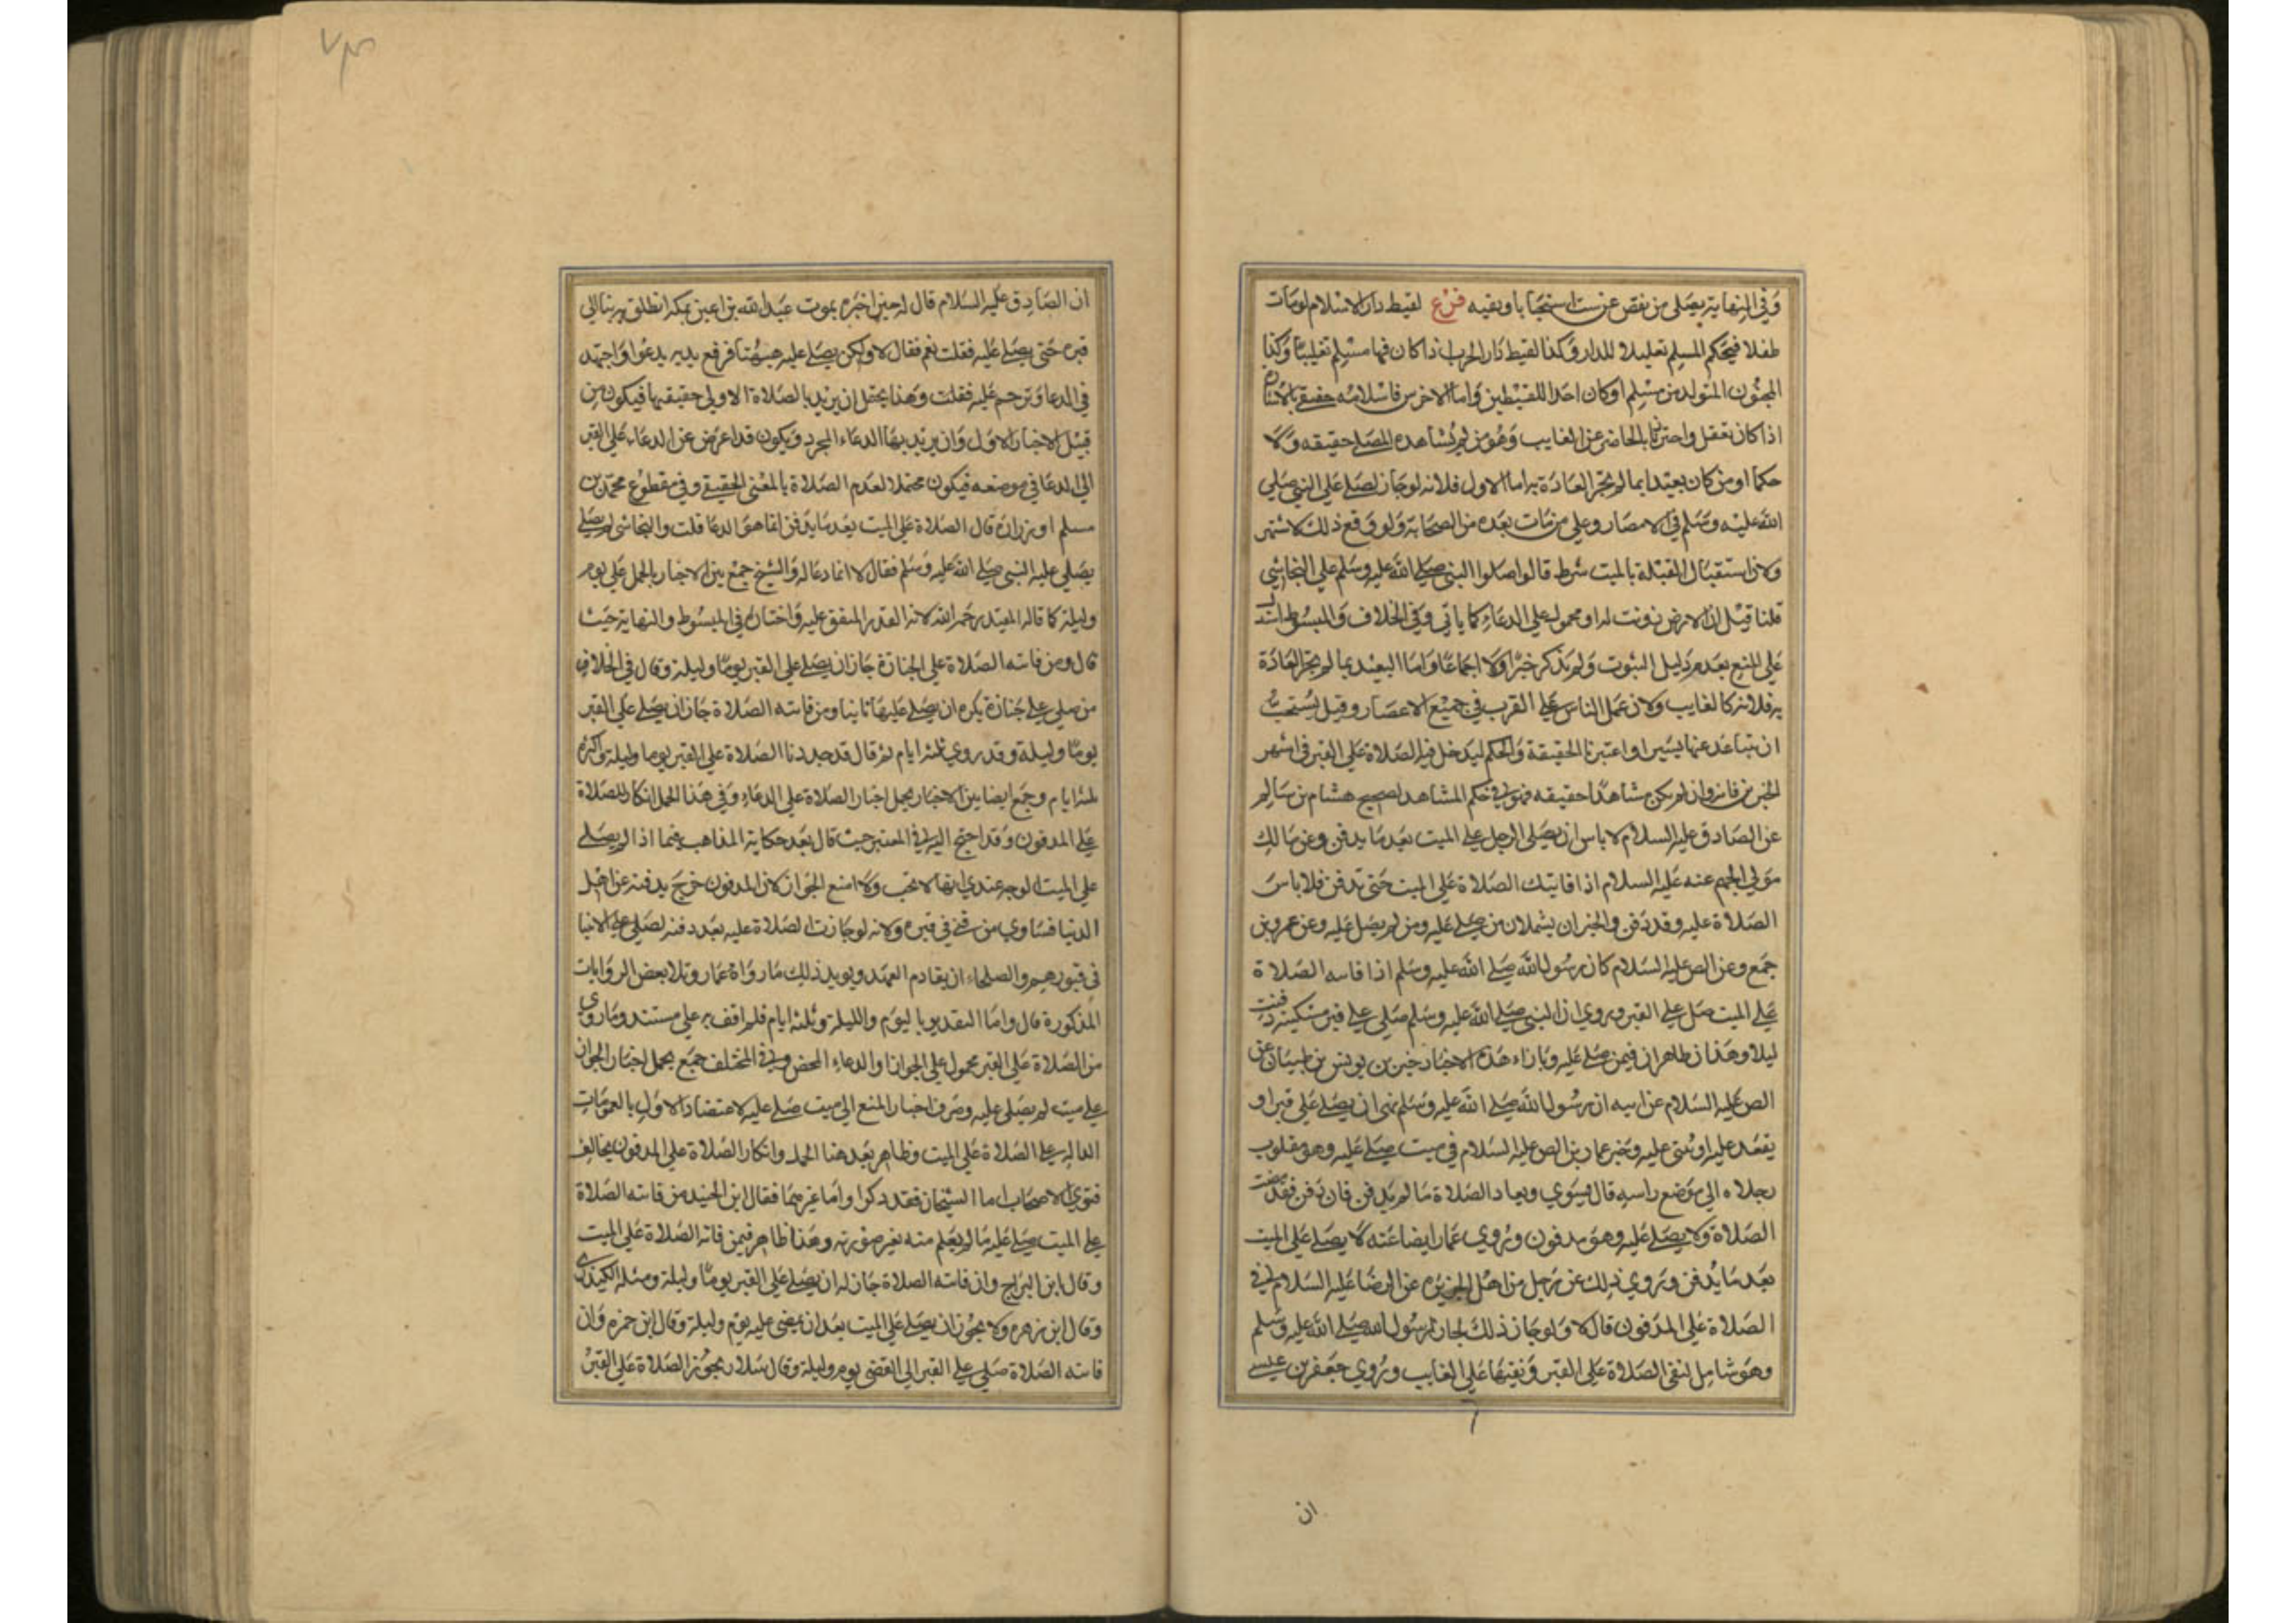 وفي النهاية يصلى من نقص عن ست استحبابا وتقيه فرع لقيط دار الاسلام لومات
طفلا فيحكم المسلم تغليبا للدار وكذا لقيط دار الحرب اذا كان فيها مسلم تغليبا وكذا
المجنون المتولد من مسلم او كان احد اللقيطين واما الاخرس فاسلامه حقيقي بالاشارة
اذا كان تعقل واحترزنا بالحاضر عن الغايب وهو من لم يشاهده المصلي حقيقه ولا
حكما او من كان بعيدا بما لم تجر العادة به اما الاول فلانه لو جاز لصلي علي النبي صلي
الله عليه وسلم في الامصار وعلي من مات بعده من الصحابة ولو وقع ذلك لاشتهر
ولان استقبال القبلة بالميت شرط قالوا صلوا النبي صلي الله عليه وسلم علي النجاشي
قلنا قيل ان الارض زويت له او محمول علي الدعاء كما ياتي وفي الخلاف والمبسوط استدل
علي المنع بعدم دليل الثبوت ولم يذكر خبرا ولا اجماعا واما البعيد بما لم تجر العادة
به فلانه كالغايب ولان عمل الناس علي القرب في جميع الاعصار وقيل يستحب
ان يتباعد عنها يسيرا واعتبرنا الحقيقة والحكم ليدخل فيه الصلاة علي القبر في اشهر
الخبرين فانه وان لم يكن مشاهدا حقيقه فهو في حكم المشاهد لصحيح هشام بن سالم
عن الصادق عليه السلام لا باس ان يصلي الرجل علي الميت بعد ما يدفن وعن مالك
مولي الجهم عنه عليه السلام اذا فاتتك الصلاة علي الميت حتي تدفن فلا باس
الصلاة عليه وقد دفن والخبران يشملان من صلي عليه ومن لم يصل عليه وعن عمرو بن
جمع وعن الص عليه السلام كان رسول الله صلي الله عليه وسلم اذا فاته الصلاة
علي الميت صل علي القبر وروي ان النبي صلي الله عليه وسلم صلي علي قبر مسكينه دفنت
ليلا وهذان ظاهران فيمن صلي عليه وبازاء هذه الاخبار خبر بن يونس بن ظبيان عن
الص عليه السلام عن ابيه ان رسول الله صلي الله عليه وسلم نهي ان يصلي علي قبر او
يقعد عليه او يبني عليه وخبر عمار بن الص عليه السلام في ميت صلي عليه وهو مقلوب
رجلاه الي موضع راسه قال يسوي ويعاد الصلاة ما لم يدفن فان دفن فقد مضت
الصلاة ولا يصلي عليه وهو مدفون وروي عمار ايضا عنه لا يصلي علي الميت
بعد ما يدفن وروي ذلك عن رجل من اهل الجزيره عن الرضا عليه السلام في
الصلاة علي المدفون قال لا ولو جاز ذلك لجاز لرسول الله صلي الله عليه وسلم
وهو شامل لنفي الصلاة علي القبر ونفيها علي الغايب وروي جعفر بن عيسي
ان
ان الصادق عليه السلام قال له حين اخبره بموت عبد الله بن اعين بمكه انطلق بنا الي
قبره حتي يصلي عليه فقلت نعم فقال لا ولكن يصلي عليه هيهنا فرفع يديه يدعوا واجتهد
في الدعا وترحم عليه فقلت وهذا يحتمل ان يريد بالصلاة الاولي حقيقتها فيكون من
قبيل الاخبار الاول وان يريد بها الدعاء المجرد ويكون قد اعرض عن الدعاء علي القبر
الي الدعا في موضعه فيكون محتملا لعدم الصلاة بالمعني الحقيقي وفي مقطوع محمد بن
مسلم او زراره قال الصلاة علي الميت بعد ما يدفن انما هو الدعا قلت والنجاشي لم يصلي
يصلي عليه النبي صلي الله عليه وسلم فقال لا انما دعا له والشيخ جمع بين الاخبار بالحمل علي يوم
وليلة كما قاله المفيد رحمه الله لانه القدر المتفق عليه واختاره في المبسوط والنهاية حيث
قال ومن فاته الصلاة علي الجنازة جاز ان يصلي علي القبر يوما وليلة وقال في الخلاف
من صلي علي جنازة يكره ان يصلي عليها ثانيا ومن فاته الصلاة جاز ان يصلي علي القبر
يوما وليلة وقد روي ثلثه ايام ثم قال قد حددنا الصلاة علي القبر يوما وليلة واكثره
ثلثه ايام وجمع ايضا بين الاخبار بحمل اخبار الصلاة علي الدعاء وفي هذا الحمل انكار للصلاة
علي المدفون وقد احتج اليه في المعتبر حيث قال بعد حكاية المذاهب فيما اذا لم يصلي
علي الميت الوجه عندي انها لا تجب ولا امنع الجواز لان المدفون خرج بدفنه عن اهل
الدنيا فساوي من فني في قبره ولانه لو جازت الصلاة عليه بعد دفنه لصلي علي الانبيا
في قبورهم والصلحاء ان تقادم العهد ويويد ذلك مارواه عمار وتلا بعض الروايات
المذكورة قال واما التقدير باليوم والليلة وثلثه ايام فلم اقف به علي مستند وماروي
من الصلاة علي القبر محمول علي الجواز او الدعاء المحض وفي المختلف جمع بحمل اخبار الجواز
علي ميت لم يصلي عليه وصرف اخبار المنع الي ميت صلي عليه لاعتضاد الاول بالعمومات
الداله علي الصلاة علي الميت وظاهر بعد هذا الحمل وانكار الصلاة علي المدفون يخالف
فتوي الاصحاب اما الشيخان فقد ذكرا واما غيرهما فقال ابن الجنيد من فاته الصلاة
علي الميت صلي عليه ما لم يعلم منه تغير صورته وهذا ظاهر فيمن فاته الصلاة علي الميت
وقال ابن البراج وان فاته الصلاة جاز له ان يصلي علي القبر يوما وليلة ومثله الكيذري
وقال ابن زهره ولا يجوز ان يصلي علي الميت بعد ان يمضي عليه يوم وليلة وقال ابن حمزه وان
فاته الصلاة صلي علي القبر الي انقضي يوم وليلة وقال سلار يجوز الصلاة علي القبر